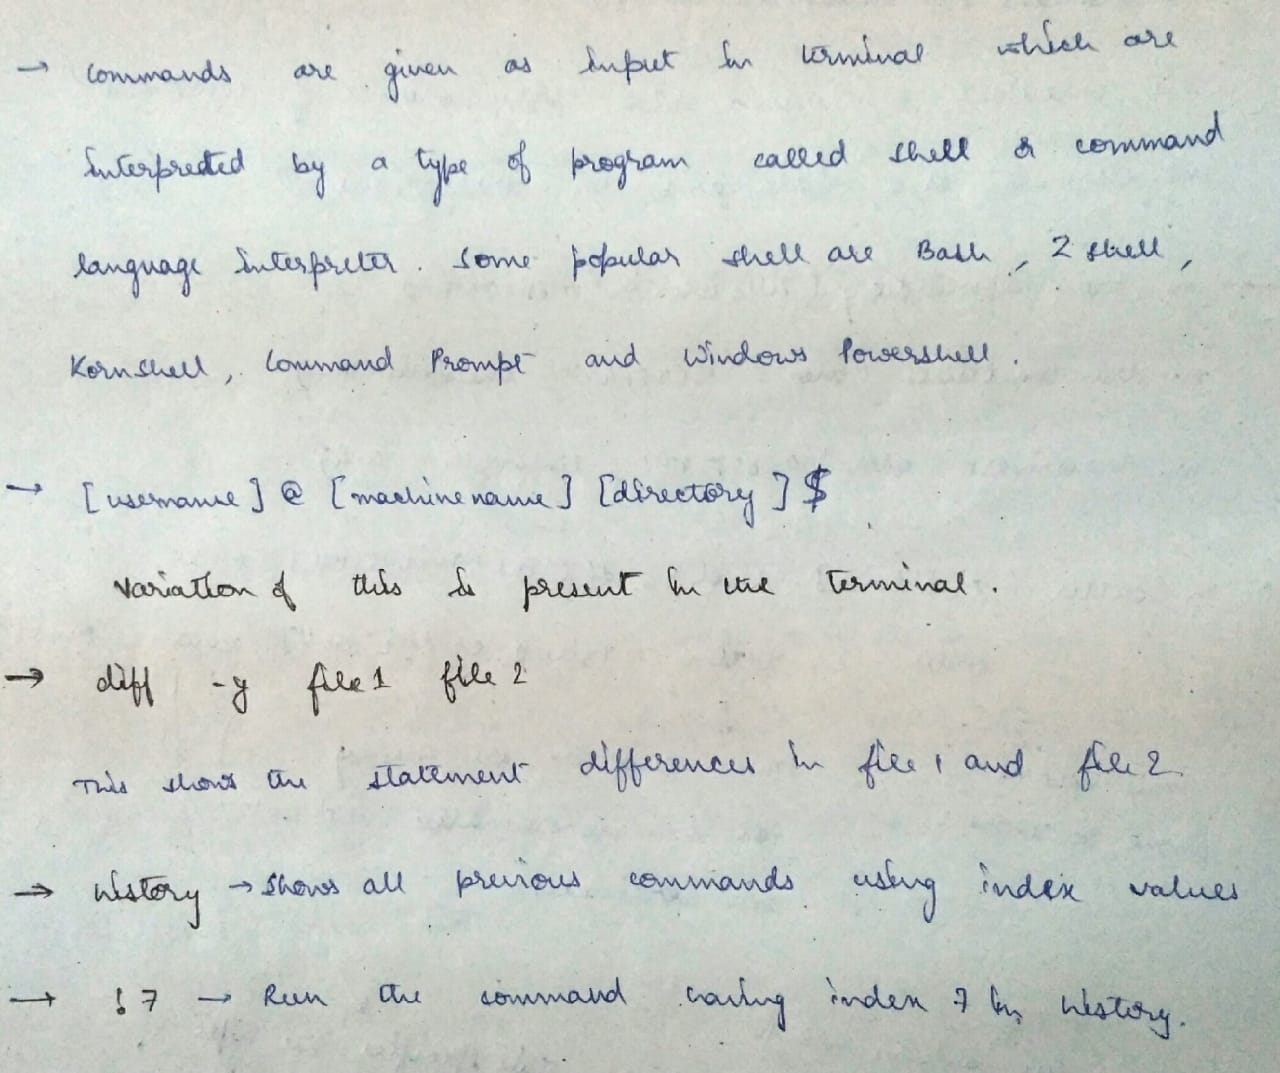 → Commands are given as input in terminal which are
interpreted by a type of program called shell or command
language interpreter. Some popular shell are Bash, Z shell,
Kornshell, Command Prompt and Windows Powershell.
→ [username] @ [machine name] [directory] $
Variation of this is present in the terminal.
→ diff -y file 1 file 2
This shows the statement differences in file 1 and file 2
→ history → Shows all previous commands using index values
→ !7 → Run the command having index 7 in history.